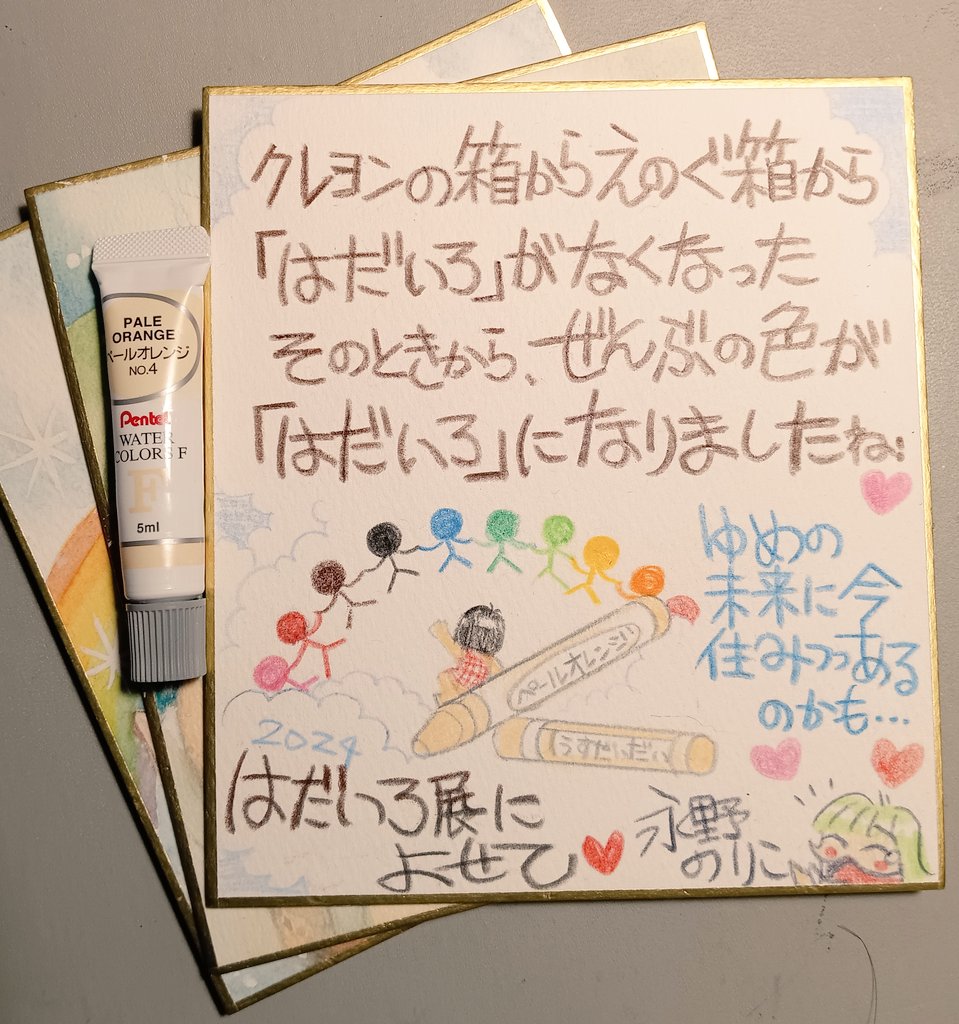 クレヨンの箱からえのぐ箱から
「はだいろ」がなくなった
そのときから、ぜんぶの色が
「はだいろ」になりましたね
ゆめの
未来に今
住みつつある
のかも…
ペールオレンジ
うすだいだい
2024
はだいろ展に
よせて
永野
のりこ
PALE
ORANGE
ペールオレンジ
NO.4
Pentel
WATER
COLORS F
F
5ml